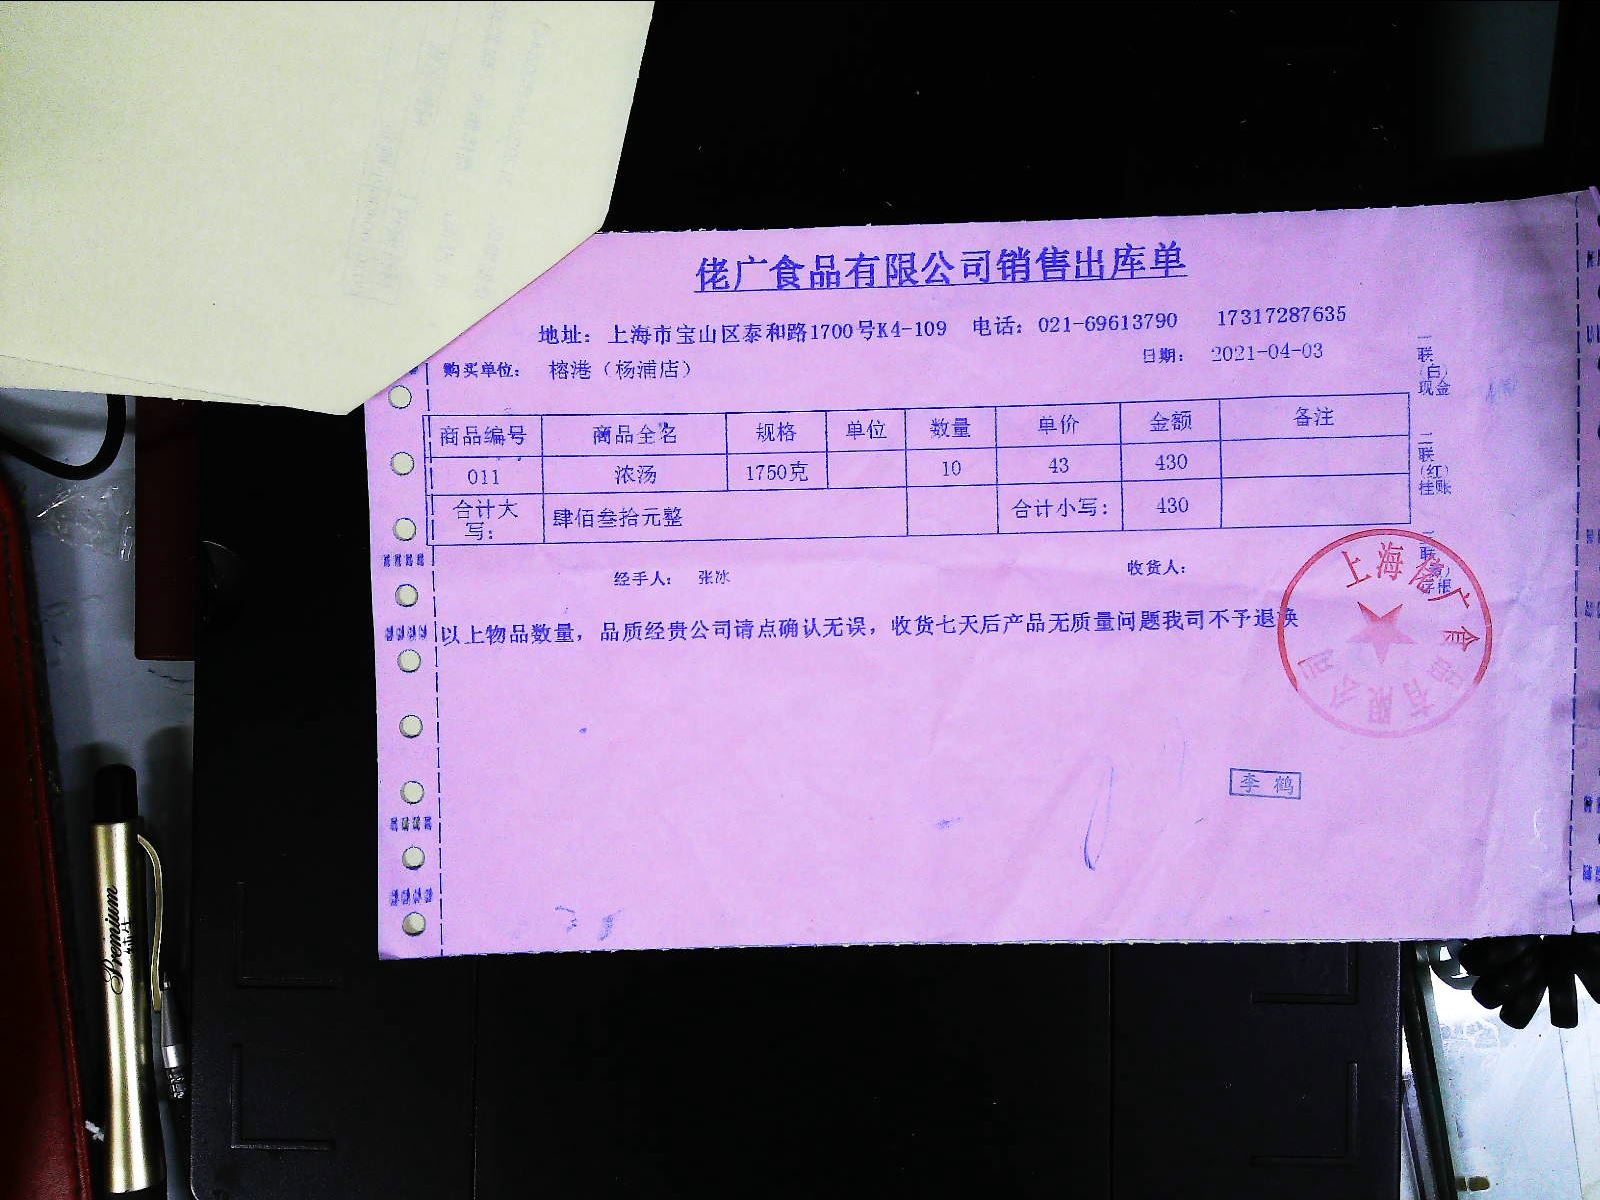 佬广食品有限公司销售出库单
地址: 上海市宝山区泰和路1700号K4-109 电话: 021-69613790 17317287635
购买单位: 榕港（杨浦店） 日期: 2021-04-03
商品编号 商品全名 规格 单位 数量 单价 金额 备注
011 浓汤 1750克 10 43 430
合计大写: 肆佰叁拾元整 合计小写: 430
经手人: 张冰 收货人:
以上物品数量，品质经贵公司请点确认无误，收货七天后产品无质量问题我司不予退换
一联（白）现金
二联（红）挂账
上海佬广食品有限公司
李鹤
Premium